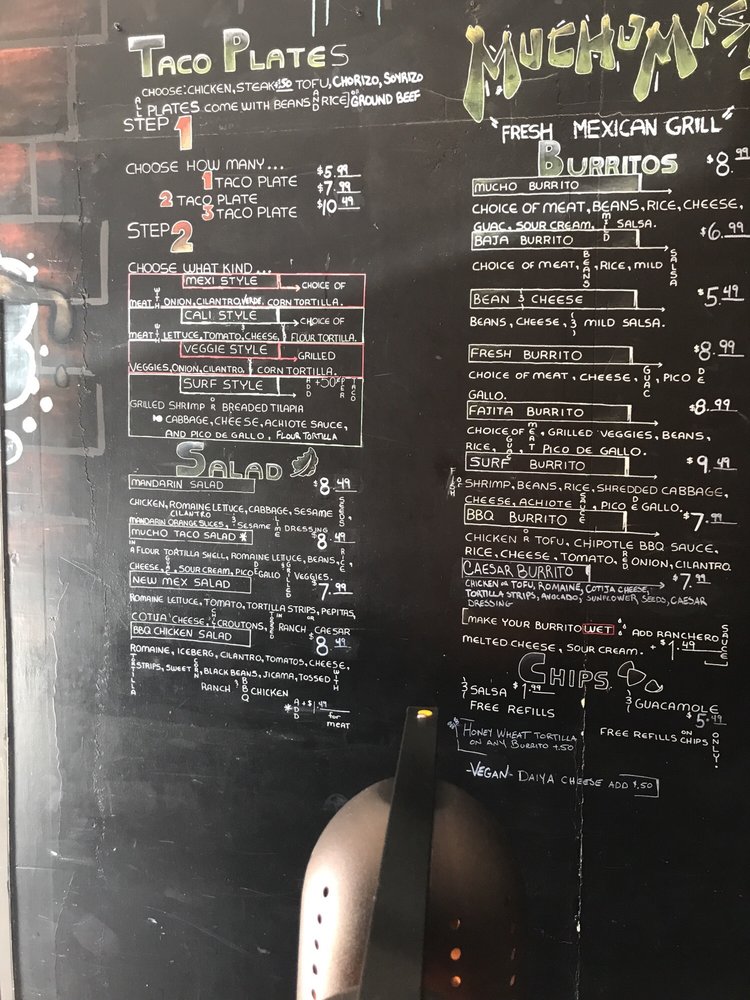 TACO PLATES
CHOOSE: CHICKEN, STEAK +1.50 TOFU, CHORIZO, SOYRIZO
ALL PLATES COME WITH BEANS AND RICE OR GROUND BEEF
STEP 1
CHOOSE HOW MANY...
1 TACO PLATE $5.99
2 TACO PLATE $7.99
3 TACO PLATE $10.49
STEP 2
CHOOSE WHAT KIND...
MEXI STYLE CHOICE OF
MEAT WITH ONION, CILANTRO, VERDE. CORN TORTILLA.
CALI STYLE CHOICE OF
MEAT LETTUCE, TOMATO, CHEESE, & FLOUR TORTILLA.
VEGGIE STYLE GRILLED
VEGGIES, ONION, CILANTRO. & CORN TORTILLA.
SURF STYLE ADD +50 PER TACO
GRILLED SHRIMP OR BREADED TILAPIA
CABBAGE, CHEESE, ACHIOTE SAUCE,
AND PICO DE GALLO, FLOUR TORTILLA
SALAD
MANDARIN SALAD $8.49
CHICKEN, ROMAINE LETTUCE, CABBAGE, SESAME SEEDS,
CILANTRO
MANDARIN ORANGE SLICES, & SESAME LIME DRESSING
MUCHO TACO SALAD * $8.49
IN A FLOUR TORTILLA SHELL, ROMAINE LETTUCE, BEANS, RICE,
CHEESE, GUAC, SOUR CREAM, PICO DE GALLO & GRILLED VEGGIES.
NEW MEX SALAD $7.99
ROMAINE LETTUCE, TOMATO, TORTILLA STRIPS, PEPITAS,
COTIJA CHEESE, & CROUTONS, TOSSED IN RANCH OR CAESAR
BBQ CHICKEN SALAD $8.49
ROMAINE, ICEBERG, CILANTRO, TOMATOS, CHEESE,
TORTILLA STRIPS, SWEET CORN, BLACK BEANS, JICAMA, TOSSED WITH
RANCH & BBQ CHICKEN
* ADD +$1.49 for MEAT
MUCHOMAS
"FRESH MEXICAN GRILL"
BURRITOS
MUCHO BURRITO $8.99
CHOICE OF MEAT, BEANS, RICE, CHEESE,
GUAC, SOUR CREAM, MILD SALSA.
BAJA BURRITO $6.99
CHOICE OF MEAT, BEANS, RICE, MILD SALSA
BEAN & CHEESE $5.49
BEANS, CHEESE, & MILD SALSA.
FRESH BURRITO $8.99
CHOICE OF MEAT, CHEESE, GUAC, PICO DE
GALLO.
FAJITA BURRITO $8.99
CHOICE OF MEAT, GRILLED VEGGIES, BEANS,
RICE, GUAC, PICO DE GALLO.
SURF BURRITO $9.49
FISH OR SHRIMP, BEANS, RICE, SHREDDED CABBAGE,
CHEESE, ACHIOTE SAUCE, PICO DE GALLO.
BBQ BURRITO $7.99
CHICKEN OR TOFU, CHIPOTLE BBQ SAUCE,
RICE, CHEESE, TOMATO, RED ONION, CILANTRO
CAESAR BURRITO $7.99
CHICKEN OR TOFU, ROMAINE, COTIJA CHEESE,
TORTILLA STRIPS, AVOCADO, SUNFLOWER SEEDS, CAESAR
DRESSING
MAKE YOUR BURRITO WET ADD RANCHERO SAUCE
MELTED CHEESE, SOUR CREAM. +$1.49
CHIPS
& SALSA $1.99 & GUACAMOLE $5.49
FREE REFILLS FREE REFILLS ON CHIPS ONLY.
HONEY WHEAT TORTILLA
ON ANY BURRITO +.50
-VEGAN- DAIYA CHEESE ADD $.50